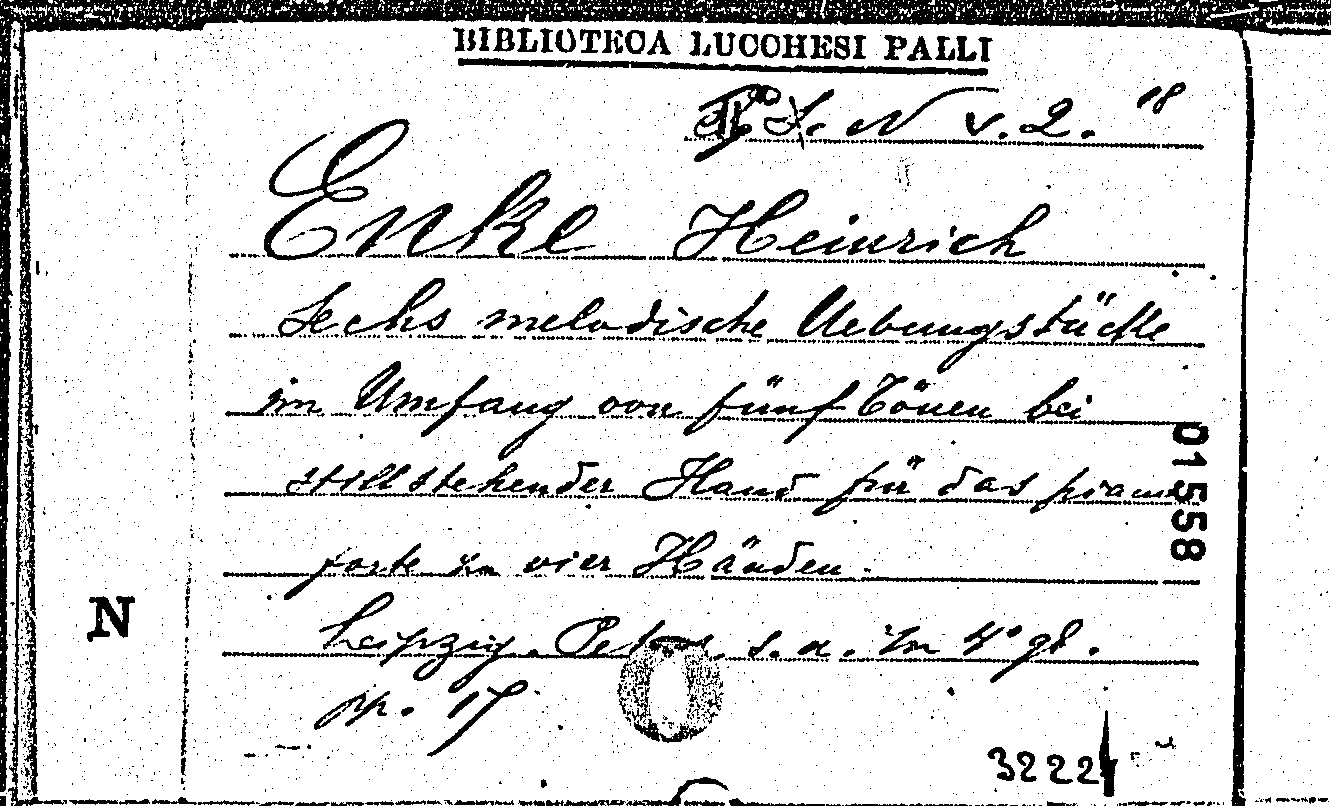 BIBLIOTECA LUCCHESI PALLI
N v. 2. 18
Enke Heinrich
Sechs melodische Uebungstücke
im Umfang von fünf Tönen bei
stillstehender Hand für das piano
forte zu vier Händen.
Leipzig. Peters. s. a. In 4° gd.
pp. 17
N
01558
3222